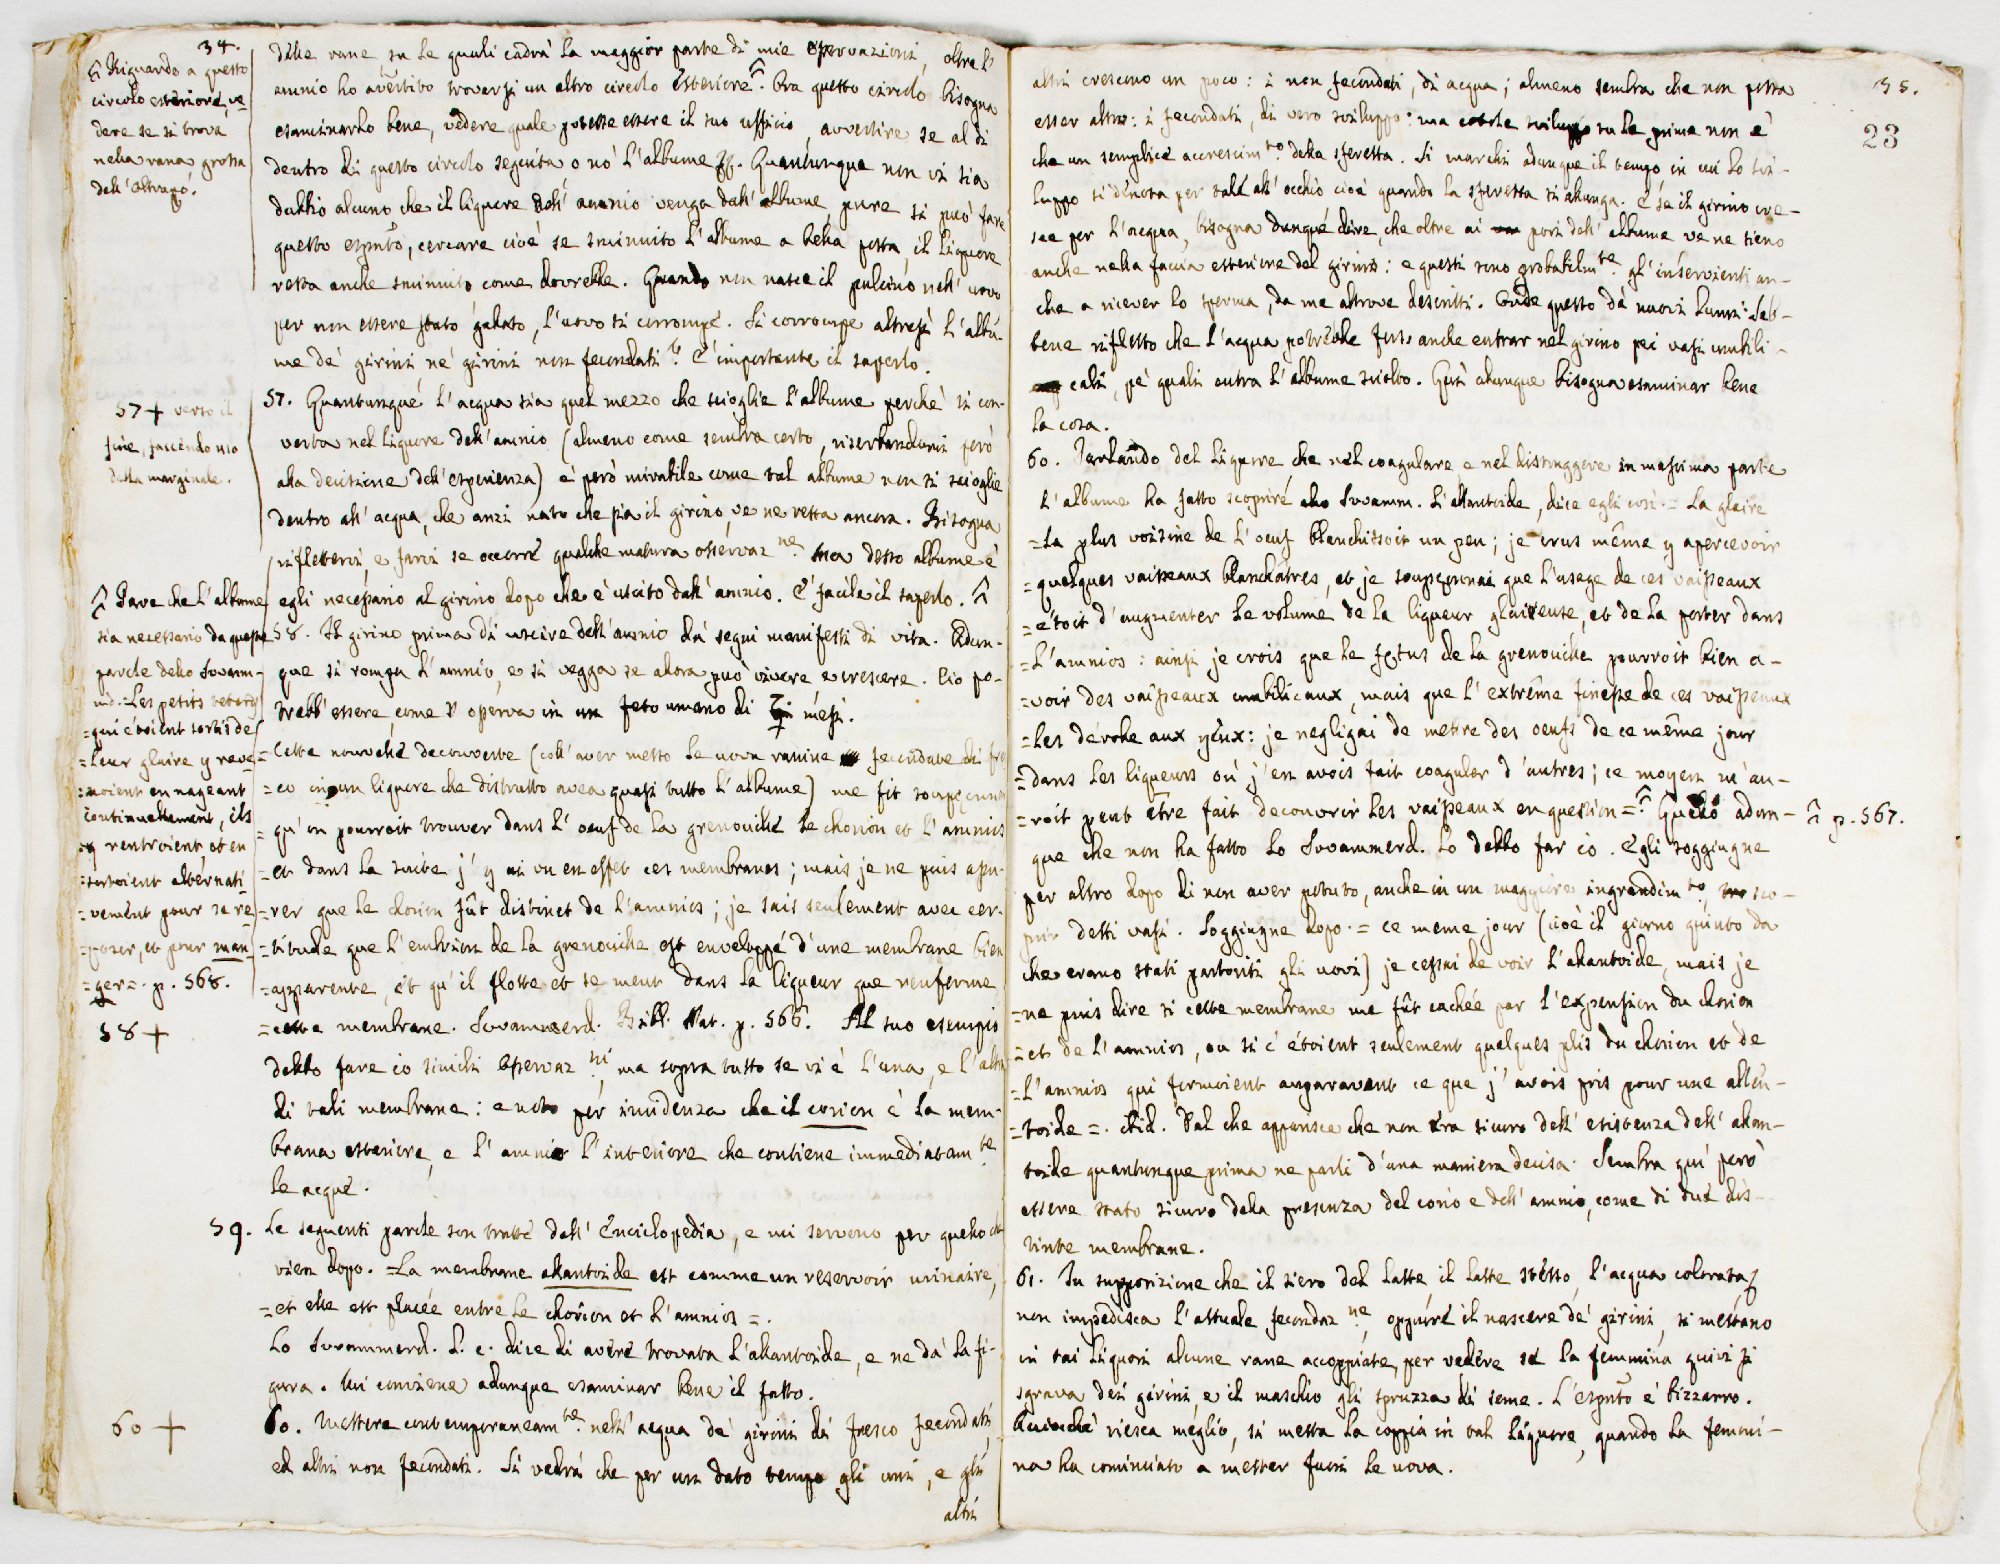 34.
Riguardo a questo
circolo esteriore, ve-
dere se si trova
nella rana grossa
dell'
delle rane su le quali cadrà la maggior parte di mie osservazioni, oltre l'
amnio ho avertito trovarsi un altro circolo esteriore. Ora questo circolo bisogna
esaminarlo bene, vedere quale potesse essere il suo uffizio, avvertire se al di
dentro di questo circolo seguita o nò l'albume &c. Quantunque non vi sia
dubbio alcuno che il liquore dell' amnio venga dall' albume, pure si può fare
questo esprto, cercare cioè se sminuito l'albume a bella posta, il liquore
resta anche sminuito come dovrebbe. Quando non nasce il pulcino nell' uovo
per non essere stato galato, l'uovo si corrompe. Si corrompe altresì l'albu-
me de' girini ne' girini non fecondati? E' importante il saperlo.
57+ verso il
fine, facendo uso
della marginale.
57. Quantunque l'acqua sia quel mezzo che scioglie l'albume perchè si con-
verta nel liquore dell'amnio (almeno come sembra certo, riserbandomi però
alla decisione dell'esperienza) è però mirabile come tal albume non si scioglie
dentro all' acqua, che anzi nato che sia il girino, ve ne resta ancora. Bisogna
rifletterci e farvi se occorre qualche matura osservazne. Ma desso albume è
egli necessario al girino dopo che è uscito dall' amnio. E' facile il saperlo.
Pare che l'albume
sia necessario da queste
parole dello Swamm-
md. = Les petits tetards
= qui étoient sortis de
= leur glaire y reve-
= noient en nageant
continuellement, ils
= y rentroient et en
= sortoient alternati-
= vement pour se re-
= poser, et pour man-
= ger =. p. 568.
58. Il girino prima di uscire dell' amnio dà segni manifesti di vita. Adun-
que si rompa l'amnio, e si vegga se allora può vivere e crescere. Ciò po-
trebb' essere come s' osserva in un feto umano di 7 mesi.
= Cette nouvelle decouverte (coll' aver messo le uova ranine fecondate di fre
= co in un liquore che distrutto avea quasi tutto l'albume) me fit soupçonner
= qu'on pourroit trouver dans l'oeuf de la grenouille le chorion et l'amnios
= et dans la suite j'y ai vu en effet ces membranes; mais je ne puis assu-
= rer que le chorion fût distinct de l'amnios; je sais seulement avec cer-
= titude que l'embrion de la grenouille est enveloppé d'une membrane bien
= apparente, et qu'il flotte et se meut dans la liqueur que renferme
58+
= cette membrane. Swammerd. Bibl. Nat. p. 566. Al suo esempio
debbo fare io simili osservazni, ma sopra tutto se vi è l'una, e l'altra
di tali membrane: e noto per incidenza che il corion è la mem-
brana esteriore, e l'amnio l'interiore che contiene immediatamte
le acque.
59. Le seguenti parole son tratte dall' Enciclopedia, e mi servono per quello che
vien dopo. = La membrane allantoide est comme un reservoir urinaire,
= et elle est placée entre le chorion et l'amnios =.
Lo Swammerd. l. c. dice di avere trovata l'allantoide, e ne dà la fi-
gura. Mi conviene adunque esaminar bene il fatto.
60+
60. Mettere contemporaneamte nell' acqua de' girini di fresco fecondati,
ed altri non fecondati. Si vedrà che per un dato tempo gli uni, e gli
altri
35.
23
altri crescono un poco: i non fecondati, di acqua; almeno sembra che non possa
esser altro: i fecondati, di vero sviluppo: ma cotale sviluppo su le prime non è
che un semplice accrescimto della sferetta. Si marchi adunque il tempo in cui lo svi-
luppo si denota per tale all' occhio cioè quando la sferetta si allunga. E se il girino cre-
sce per l'acqua, bisogna dunque dire, che oltre ai pori dell' albume ve ne sieno
anche nella faccia esteriore del girino: e questi sono probabilmte gl' inservienti an-
che a ricever lo sperma, da me altrove descritti. Onde questo dà nuovi lumi. Seb-
bene rifletto che l'acqua potrebbe forse anche entrar nel girino pei vasi umbili-
cali, pe' quali entra l'albume sciolto. Quì adunque bisogna esaminar bene
la cosa.
60. Parlando del liquore che nel coagulare e nel distruggere in massima parte
l'albume ha fatto scoprire allo Swamm. l'allantoide, dice egli così. = La glaire
= la plus voisine de l'oeuf blanchissoit un peu; je crus même y apercevoir
= quelques vaisseaux blanchâtres, et je soupçonnai que l'usage de ces vaisseaux
= étoit d'augmenter le volume de la liqueur glaireuse, et de la porter dans
= l'amnios: ainsi je crois que le foetus de la grenouille pourroit bien a-
= voir des vaisseaux umbilicaux, mais que l'extrême finesse de ces vaisseaux
= les dérobe aux yeux: je negligai de mettre des oeufs de ce même jour
= dans les liqueurs où j'en avois fait coaguler d'autres; ce moyen m'au-
= roit peut être fait decouvrir les vaisseaux en question =. Quello adun-
p. 567.
que che non ha fatto lo Swammerd. lo debbo far io. Egli soggiugne
per altro dopo di non aver potuto, anche in un maggiore ingrandimto, sco-
prir detti vasi. Soggiugne dopo. = ce meme jour (cioè il giorno quinto da
che erano stati partoriti gli uovi) je cessai de voir l'allantoide, mais je
= ne puis dire si cette membrane me fût cachée par l'expension du chorion
= et de l'amnios, ou si c'étoient seulement quelques plis du chorion et de
= l'amnios qui formoient auparavant ce que j'avois pris pour une allan-
= toide =. ibid. Dal che apparisce che non era sicuro dell' esistenza dell' allan-
toide quantunque prima ne parli d'una maniera decisa. Sembra quì però
essere stato sicuro della presenza del corio e dell' amnio, come di due dis-
tinte membrane.
61. In supposizione che il siero del latte, il latte stesso, l'acqua colorata &
non impedisca l'attuale fecondazne, oppure il nascere de' girini, si mettano
in tai liquori alcune rane accoppiate, per vedere se la femmina quivi si
sgrava dei girini, e il maschio gli spruzza di seme. L'esprto è bizzarro.
Acciochè riesca meglio, si metta la coppia in tal liquore, quando la femmi-
na ha cominciato a metter fuori le uova.